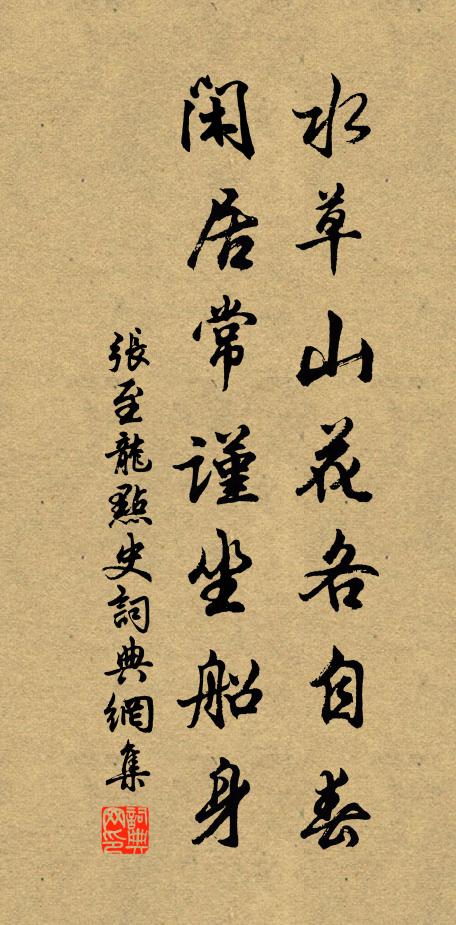 水草山花各自春
閑居常謹坐船身
張至龍點史詞典網集
詞典网印